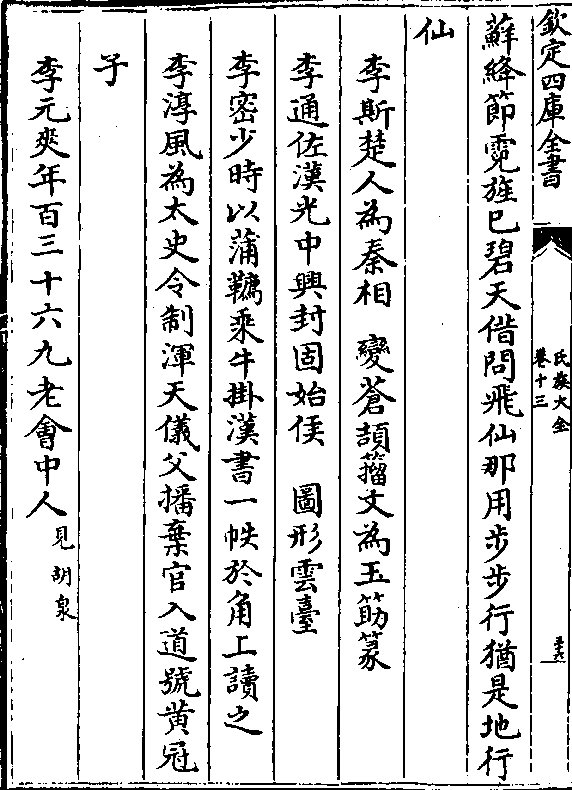 欽定四庫全書
氏族大全
卷十三
蘇絳節霓旌已碧天借問飛仙那用步步行猶是地行
仙
李斯楚人為秦相　變蒼頡籀文為玉筯篆
李通佐漢光中興封固始侯　圖形雲臺
李密少時以蒲韉乘牛掛漢書一帙於角上讀之
李淳風為太史令制渾天儀父播棄官入道號黄冠
子
李元爽年百三十六九老會中人見胡杲